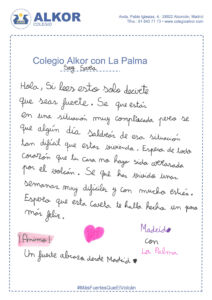 ALKOR
COLEGIO
Avda. Pablo Iglesias, 4 - 28922 Alcorcón, Madrid
www.colegioalkor.com
Colegio Alkor con La Palma
Soy Sara
Hola, Si lees esto solo decirte
que seas fuerte. Se que estás
en una situación muy complicada pero se
que algún día saldréis de esa situación
tan difícil que estas viviendo. Espero de todo
corazón que tu casa no haya sido
por el volcán. Sé que has vivido unas
semanas muy difíciles y con mucho estrés.
Espero que esta Carta te halla hecho un poco
más feliz.
Madrid
con
La Palma
¡Animo!
Un fuerte abrazo desde Madrid
#MasFuertesQueElVolcán